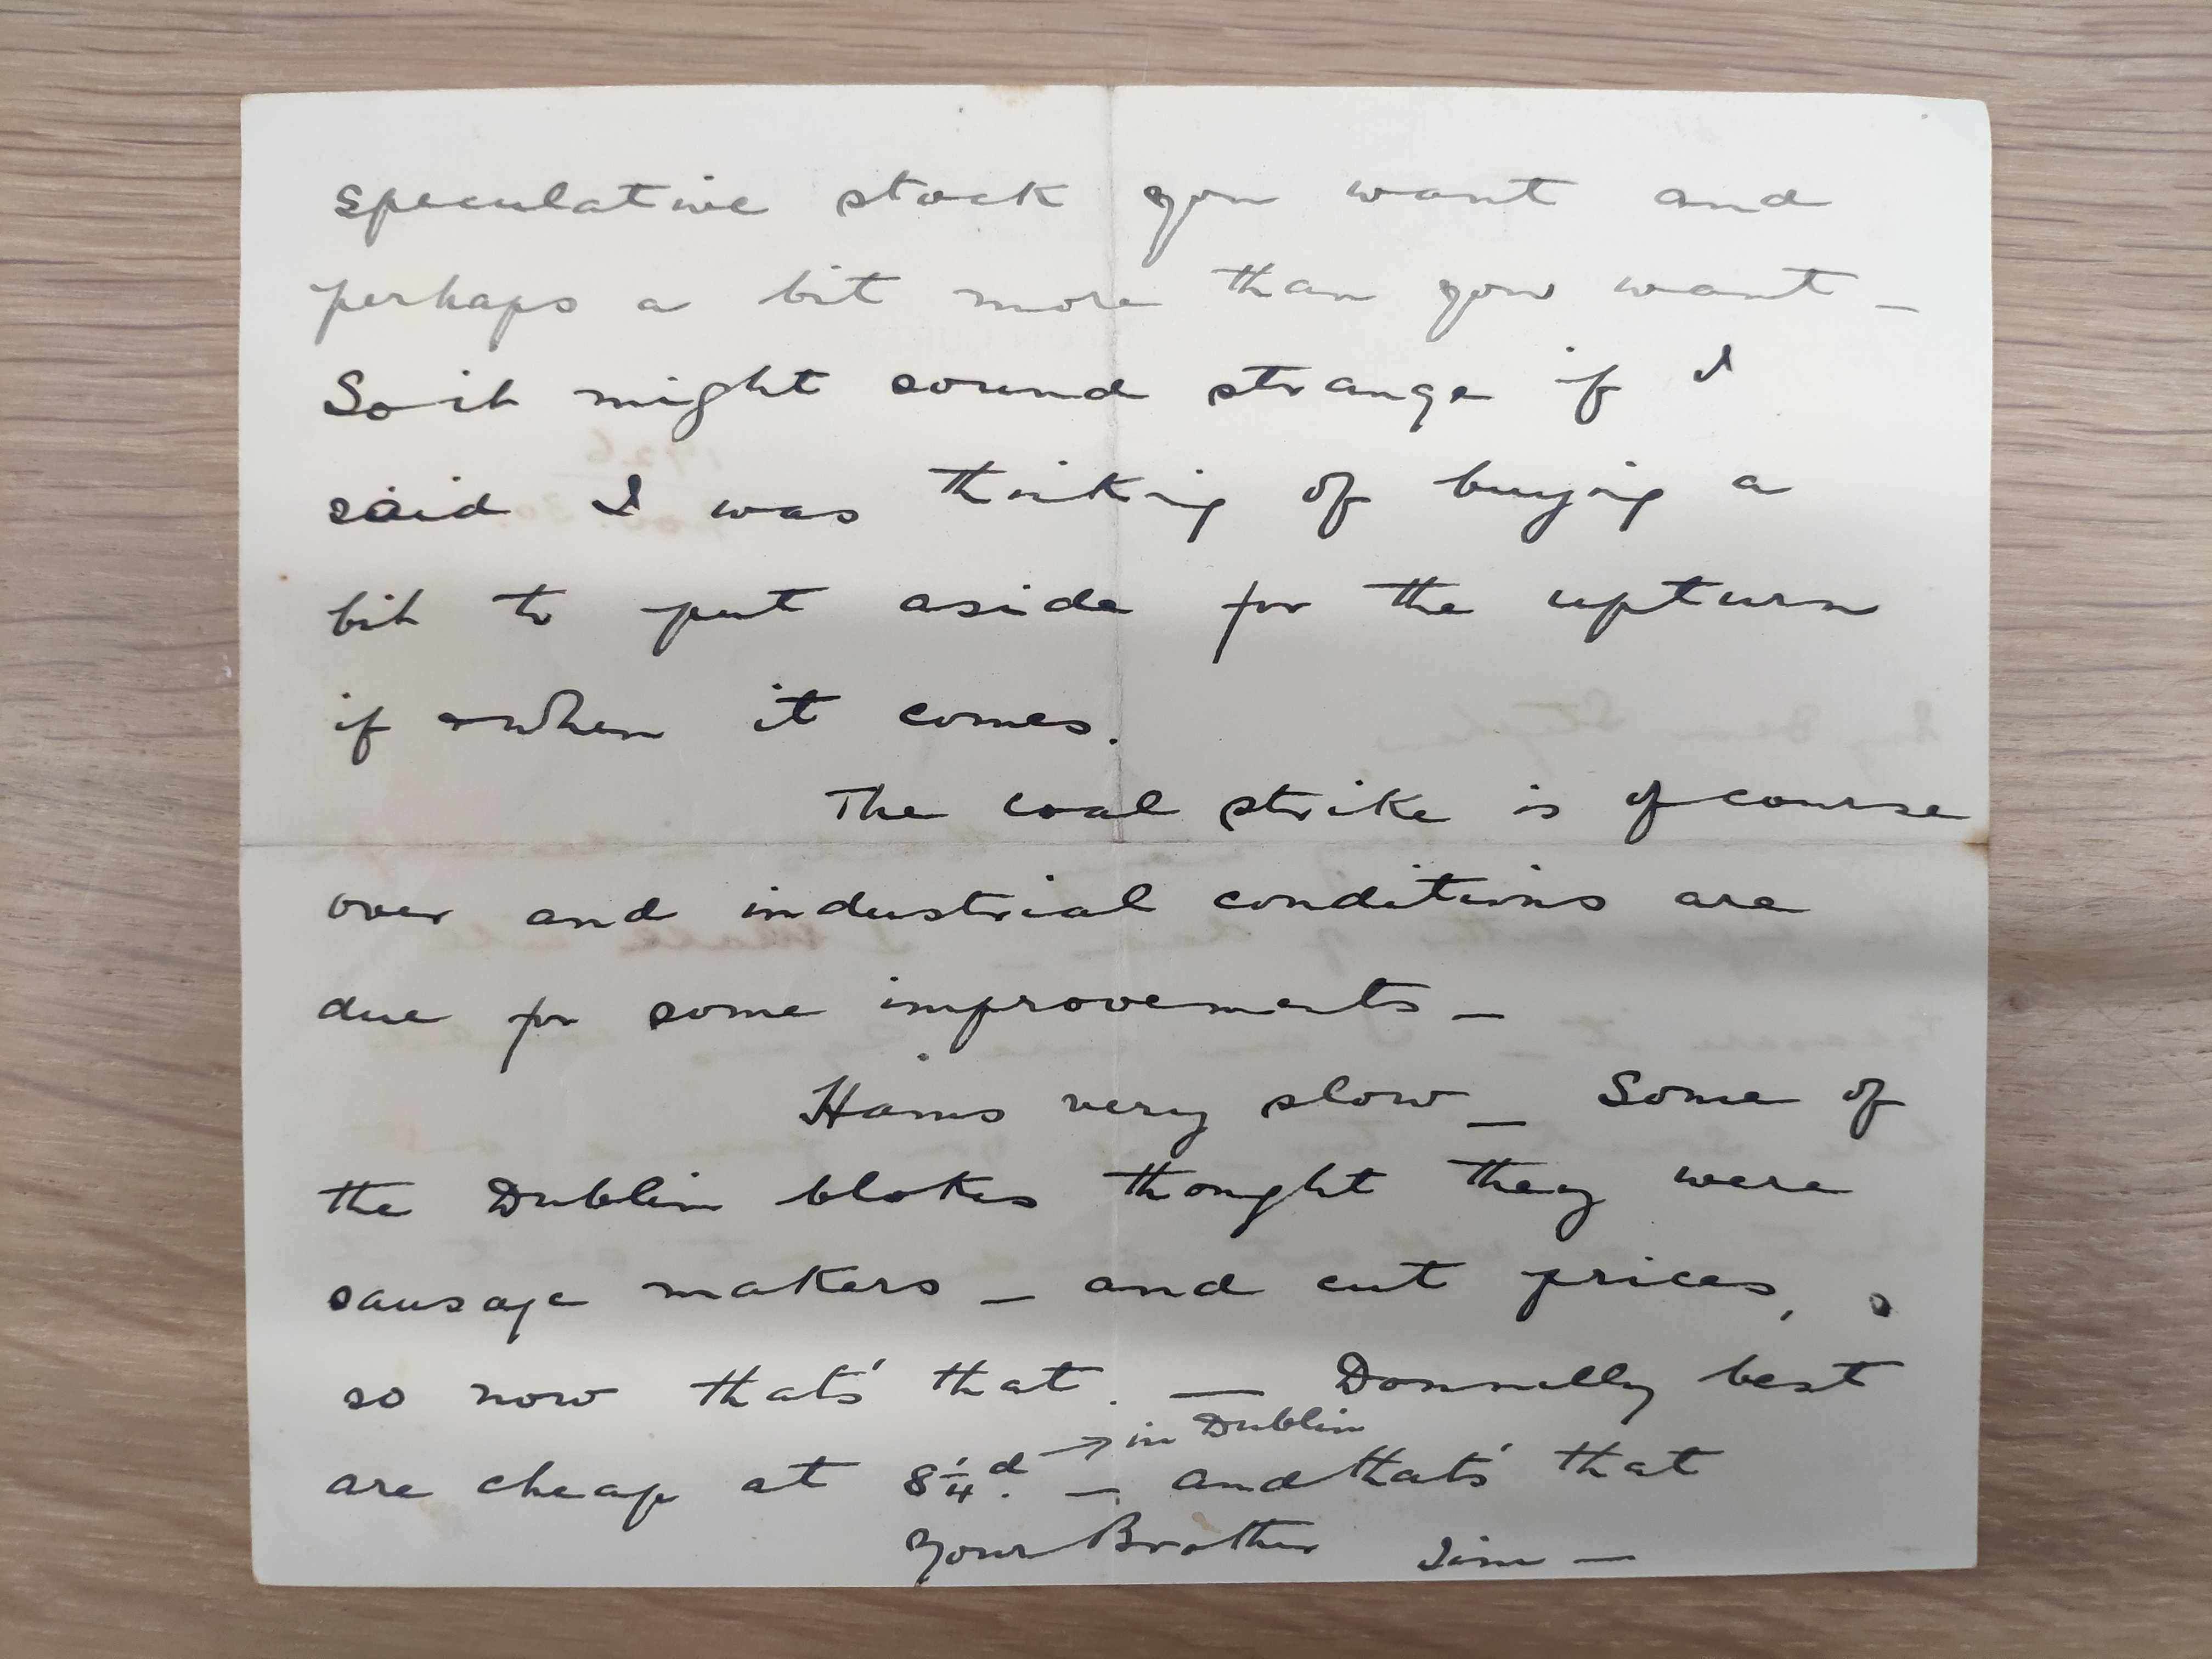 speculative stock you want and
perhaps a bit more than you want –
So it might sound strange if I
said I was thinking of buying a
bit to put aside for the upturn
if & when it comes.
The coal strike is of course
over and industrial conditions are
due for some improvements –
Hams very slow – Some of
the Dublin blokes thought they were
sausage makers – and cut prices,
so now thats' that. — Donnelly best
are cheap at 8¼d. → in Dublin – and thats' that
Your Brother Jim —